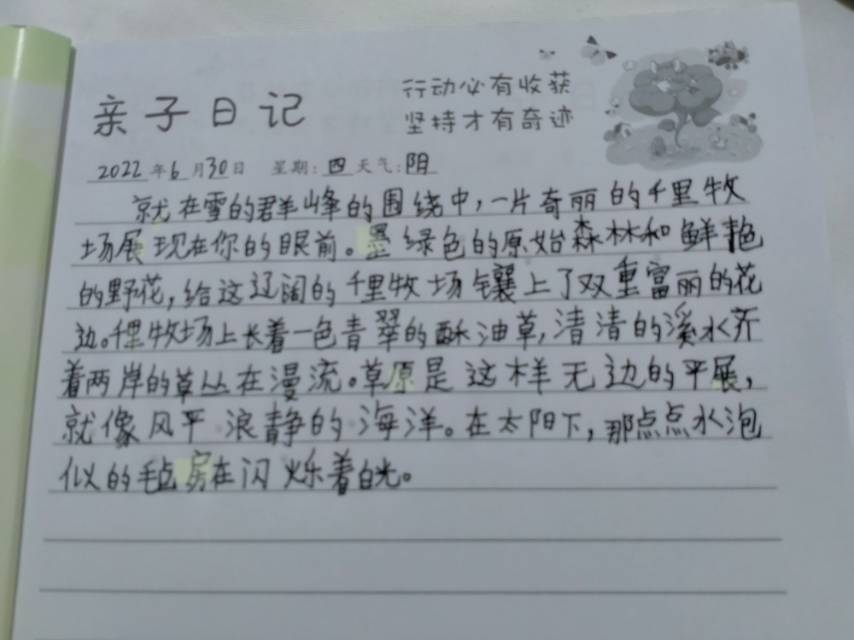 亲子日记
行动必有收获
坚持才有奇迹
2022年6月30日 星期:四 天气:阴
就在雪的群峰的围绕中,一片奇丽的千里牧
场展现在你的眼前。墨绿色的原始森林和鲜艳
的野花,给这辽阔的千里牧场镶上了双重富丽的花
边。千里牧场上长着一色青翠的酥油草,清清的溪水齐
着两岸的草丛在漫流。草原是这样无边的平展,
就像风平浪静的海洋。在太阳下,那点点水泡
似的毡房在闪烁着白光。